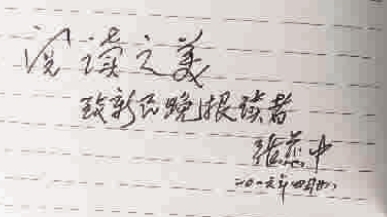 阅读之美
致新民晚报读者
张慈中
二〇一六年四月